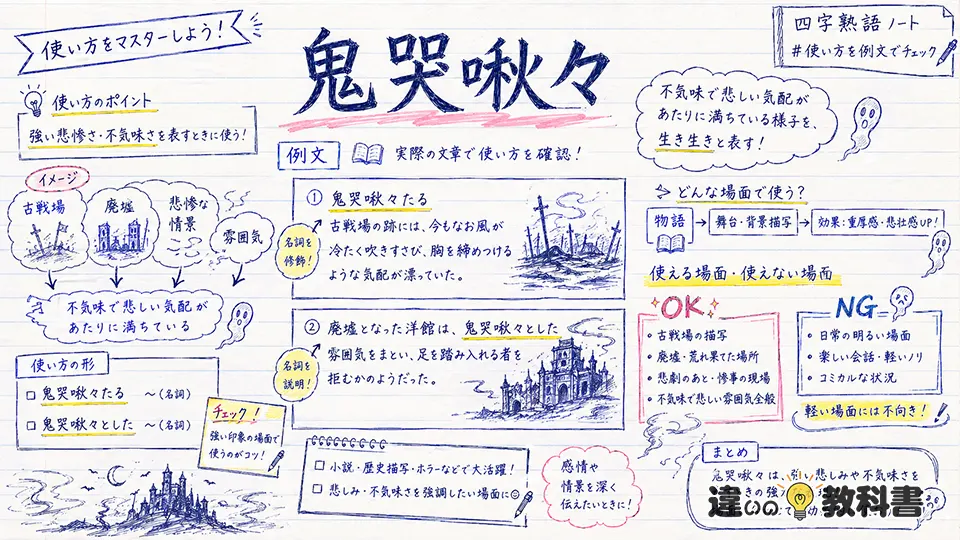 使い方をマスターしよう!
鬼哭啾々
四字熟語ノート
#使い方を例文でチェック
使い方のポイント
強い悲惨さ・不気味さを表すときに使う!
イメージ
古戦場
廃墟
悲惨な
情景
雰囲気
不気味で悲しい気配が
あたりに満ちている
使い方の形
□ 鬼哭啾々たる ～(名詞)
□ 鬼哭啾々とした ～(名詞)
チェック!
強い印象の場面で
使うのがコツ!
例文
実際の文章で使い方を確認!
① 鬼哭啾々たる
古戦場の跡には、今もなお風が
冷たく吹きすさび、胸を締めつける
ような気配が漂っていた。
名詞を
修飾!
② 廃墟となった洋館は、鬼哭啾々とした
雰囲気をまとい、足を踏み入れる者を
拒むかのようだった。
名詞を
説明!
□ 小説・歴史描写・ホラーなどで大活躍!
□ 悲しみ・不気味さを強調したい場面に
感情や
情景を深く
伝えたいときに!
不気味で悲しい気配が
あたりに満ちている様子を、
生き生きと表す!
どんな場面で使う?
物語
舞台・背景描写
効果:重厚感・悲壮感UP!
使える場面・使えない場面
OK
• 古戦場の描写
• 廃墟・荒れ果てた場所
• 悲劇のあと・惨事の現場
• 不気味で悲しい雰囲気全般
NG
• 日常の明るい場面
• 楽しい会話・軽いノリ
• コミカルな状況
軽い場面には不向き!
まとめ
鬼哭啾々は、強い悲しみや不気味さを
違いの教科書